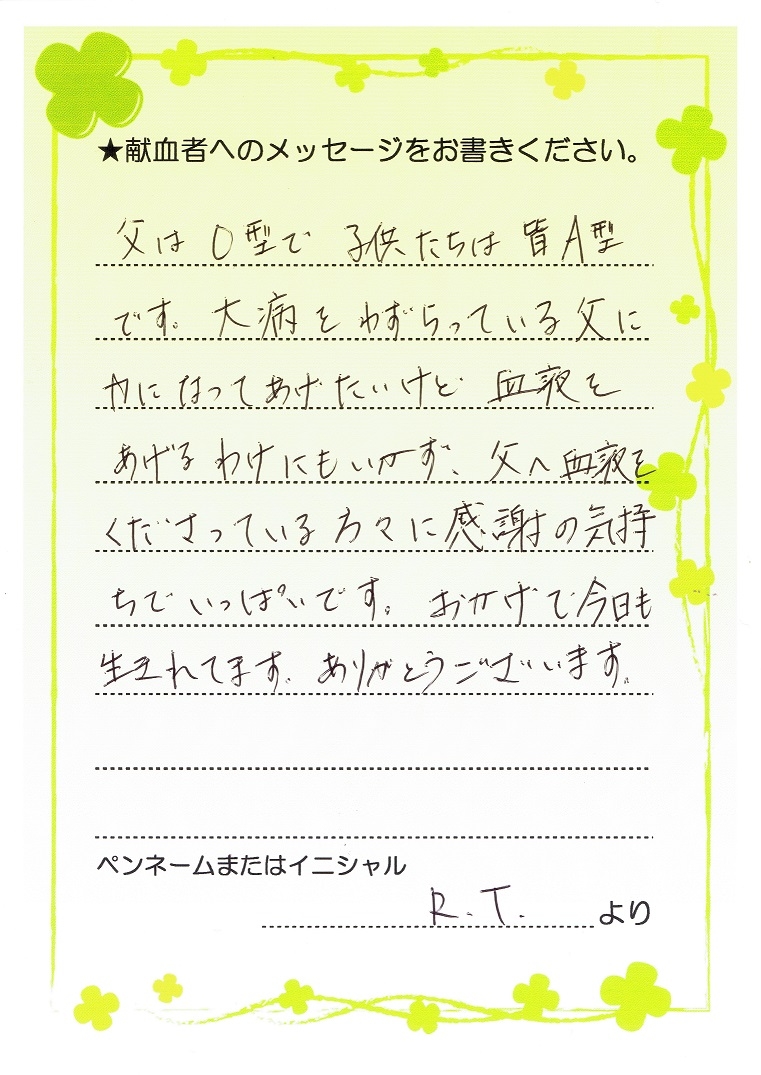 ★献血者へのメッセージをお書きください。
父は O型で 子供たちは 皆A型
です。大病を わずらっている父に
力に なってあげたいけど 血液を
あげる わけにもいかず、父へ血液を
くださっている方々に感謝の気持
ちで いっぱいです。おかげで今日も
生きれてます。ありがとうございます。
ペンネームまたはイニシャル
R.T. より